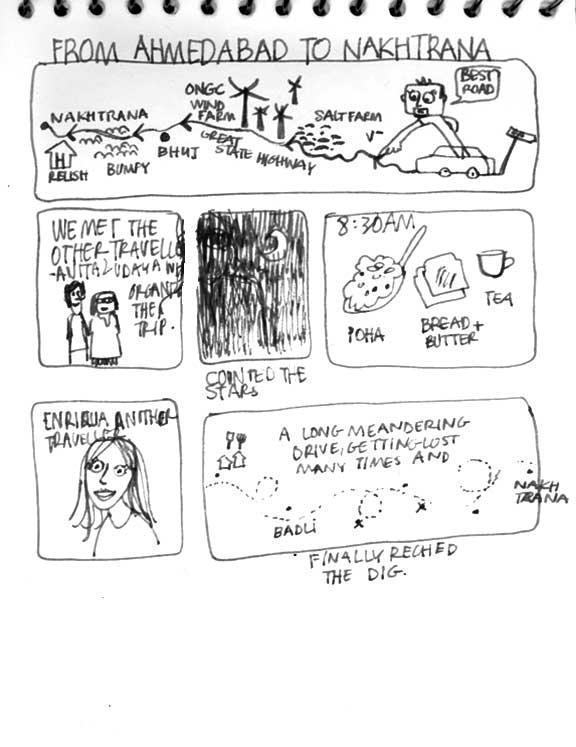 FROM AHMEDABAD TO NAKHTRANA
BEST
ROAD
ONGC
WIND
FARM
SALT FARM
NAKHTRANA
GREAT
STATE HIGHWAY
BHUJ
BUMPY
H
RELISH
WE MET THE
OTHER TRAVELLE
ORGANI
THE
TRIP.
COUNTED THE
STARS
8:30AM
POHA
BREAD +
BUTTER
TEA
ANOTHER
TRAVELLER
A LONG MEANDERING
DRIVE, GETTING LOST
MANY TIMES AND
NAKH
TRANA
BADLI
FINALLY RECHED
THE DIG.